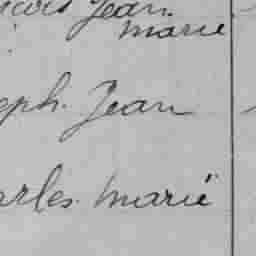 Jean
marie
eph. Jean
arles. marie